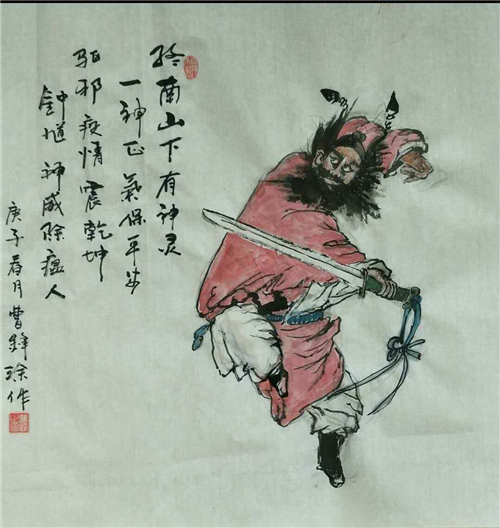 终南山下有神灵
一神正氣保平安
驱邪疫情震乾坤
钟馗神威除瘟人
庚子春月曹鋒作